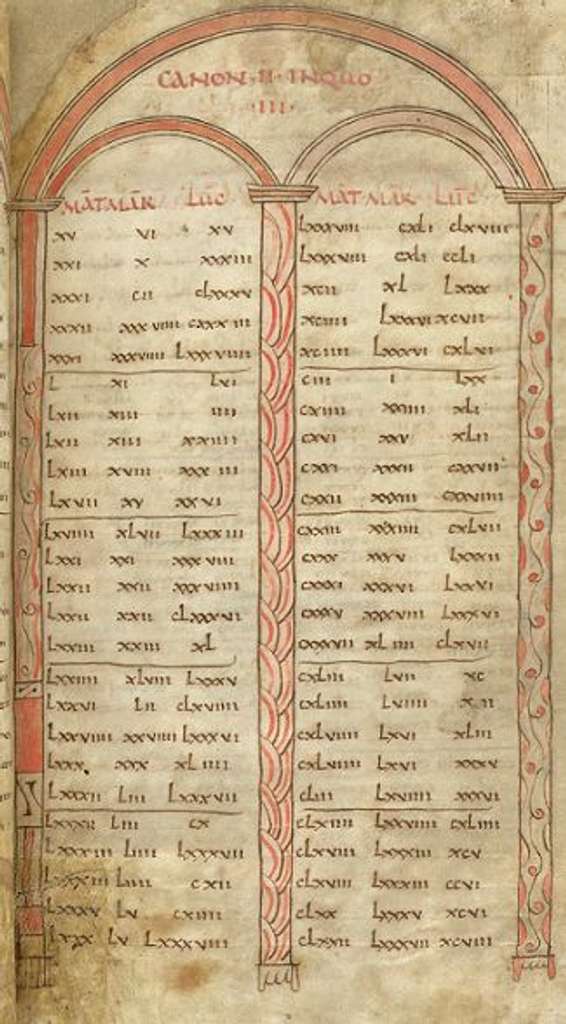 CANON·II·INQUO
·III·
MAT MAR LUC
xv vi xv
xxi x xxxiii
xxxi cii clxxxv
xxxii xxxviiii cxxxiii
xxxi xxxviiii Lxxxviiii
L xi Lvi
Lxii xiii iiii
Lxii xiii xxiiii
Lxiii xviii xxxiiii
Lxvii xv xxvi
Lxviiii xLvii Lxxxiii
Lxxi xxi xxxviii
Lxxii xxii xxxviiii
Lxxii xxii cLxxxvi
Lxxiii xxiii xL
Lxxiiii xLviiii Lxxxv
Lxxvi Lii cLxviiii
Lxxviiii xxviiii Lxxxvi
Lxxx xxx xLiiii
Lxxxii Liii Lxxxvii
Lxxxii Liii cx
Lxxxiii Liiii Lxxxvii
Lxxxiii Liiii cxii
Lxxxv Lv cxiiii
Lxxx Lv Lxxxviii
MAT MAR LUC
Lxxxviii cxLi cLxviii
Lxxxviii cxLi ccLi
xcii xL Lxxx
xciiii Lxxxvi xcvii
xciiii Lxxxvi cxLvi
ciii i Lxx
cxiiii xxiiii xLi
cxvi xxv xLii
cxxi xxxii cxxvii
cxxii xxxiii cxxviiii
cxxiii xxxiiii cxLvii
cxxx xxxv Lxxxii
cxxxi xxxvi Lxxvi
cxxxv xxxviii Lxxxvi
cxxxvii xLiiii cLxvii
cxLiii Lvii xc
cxLiiii Lviiii xii
cxLviiii Lxvi xLiii
cxLviiii Lxvi xxxv
cLiii Lxviiii xxxvi
cLxiiii Lxxviiii cxLiiii
cLxviii Lxxxiii xcv
cLxviii Lxxxiii ccvi
cLxx Lxxxv xcvi
cLxxii Lxxxvii xcviii